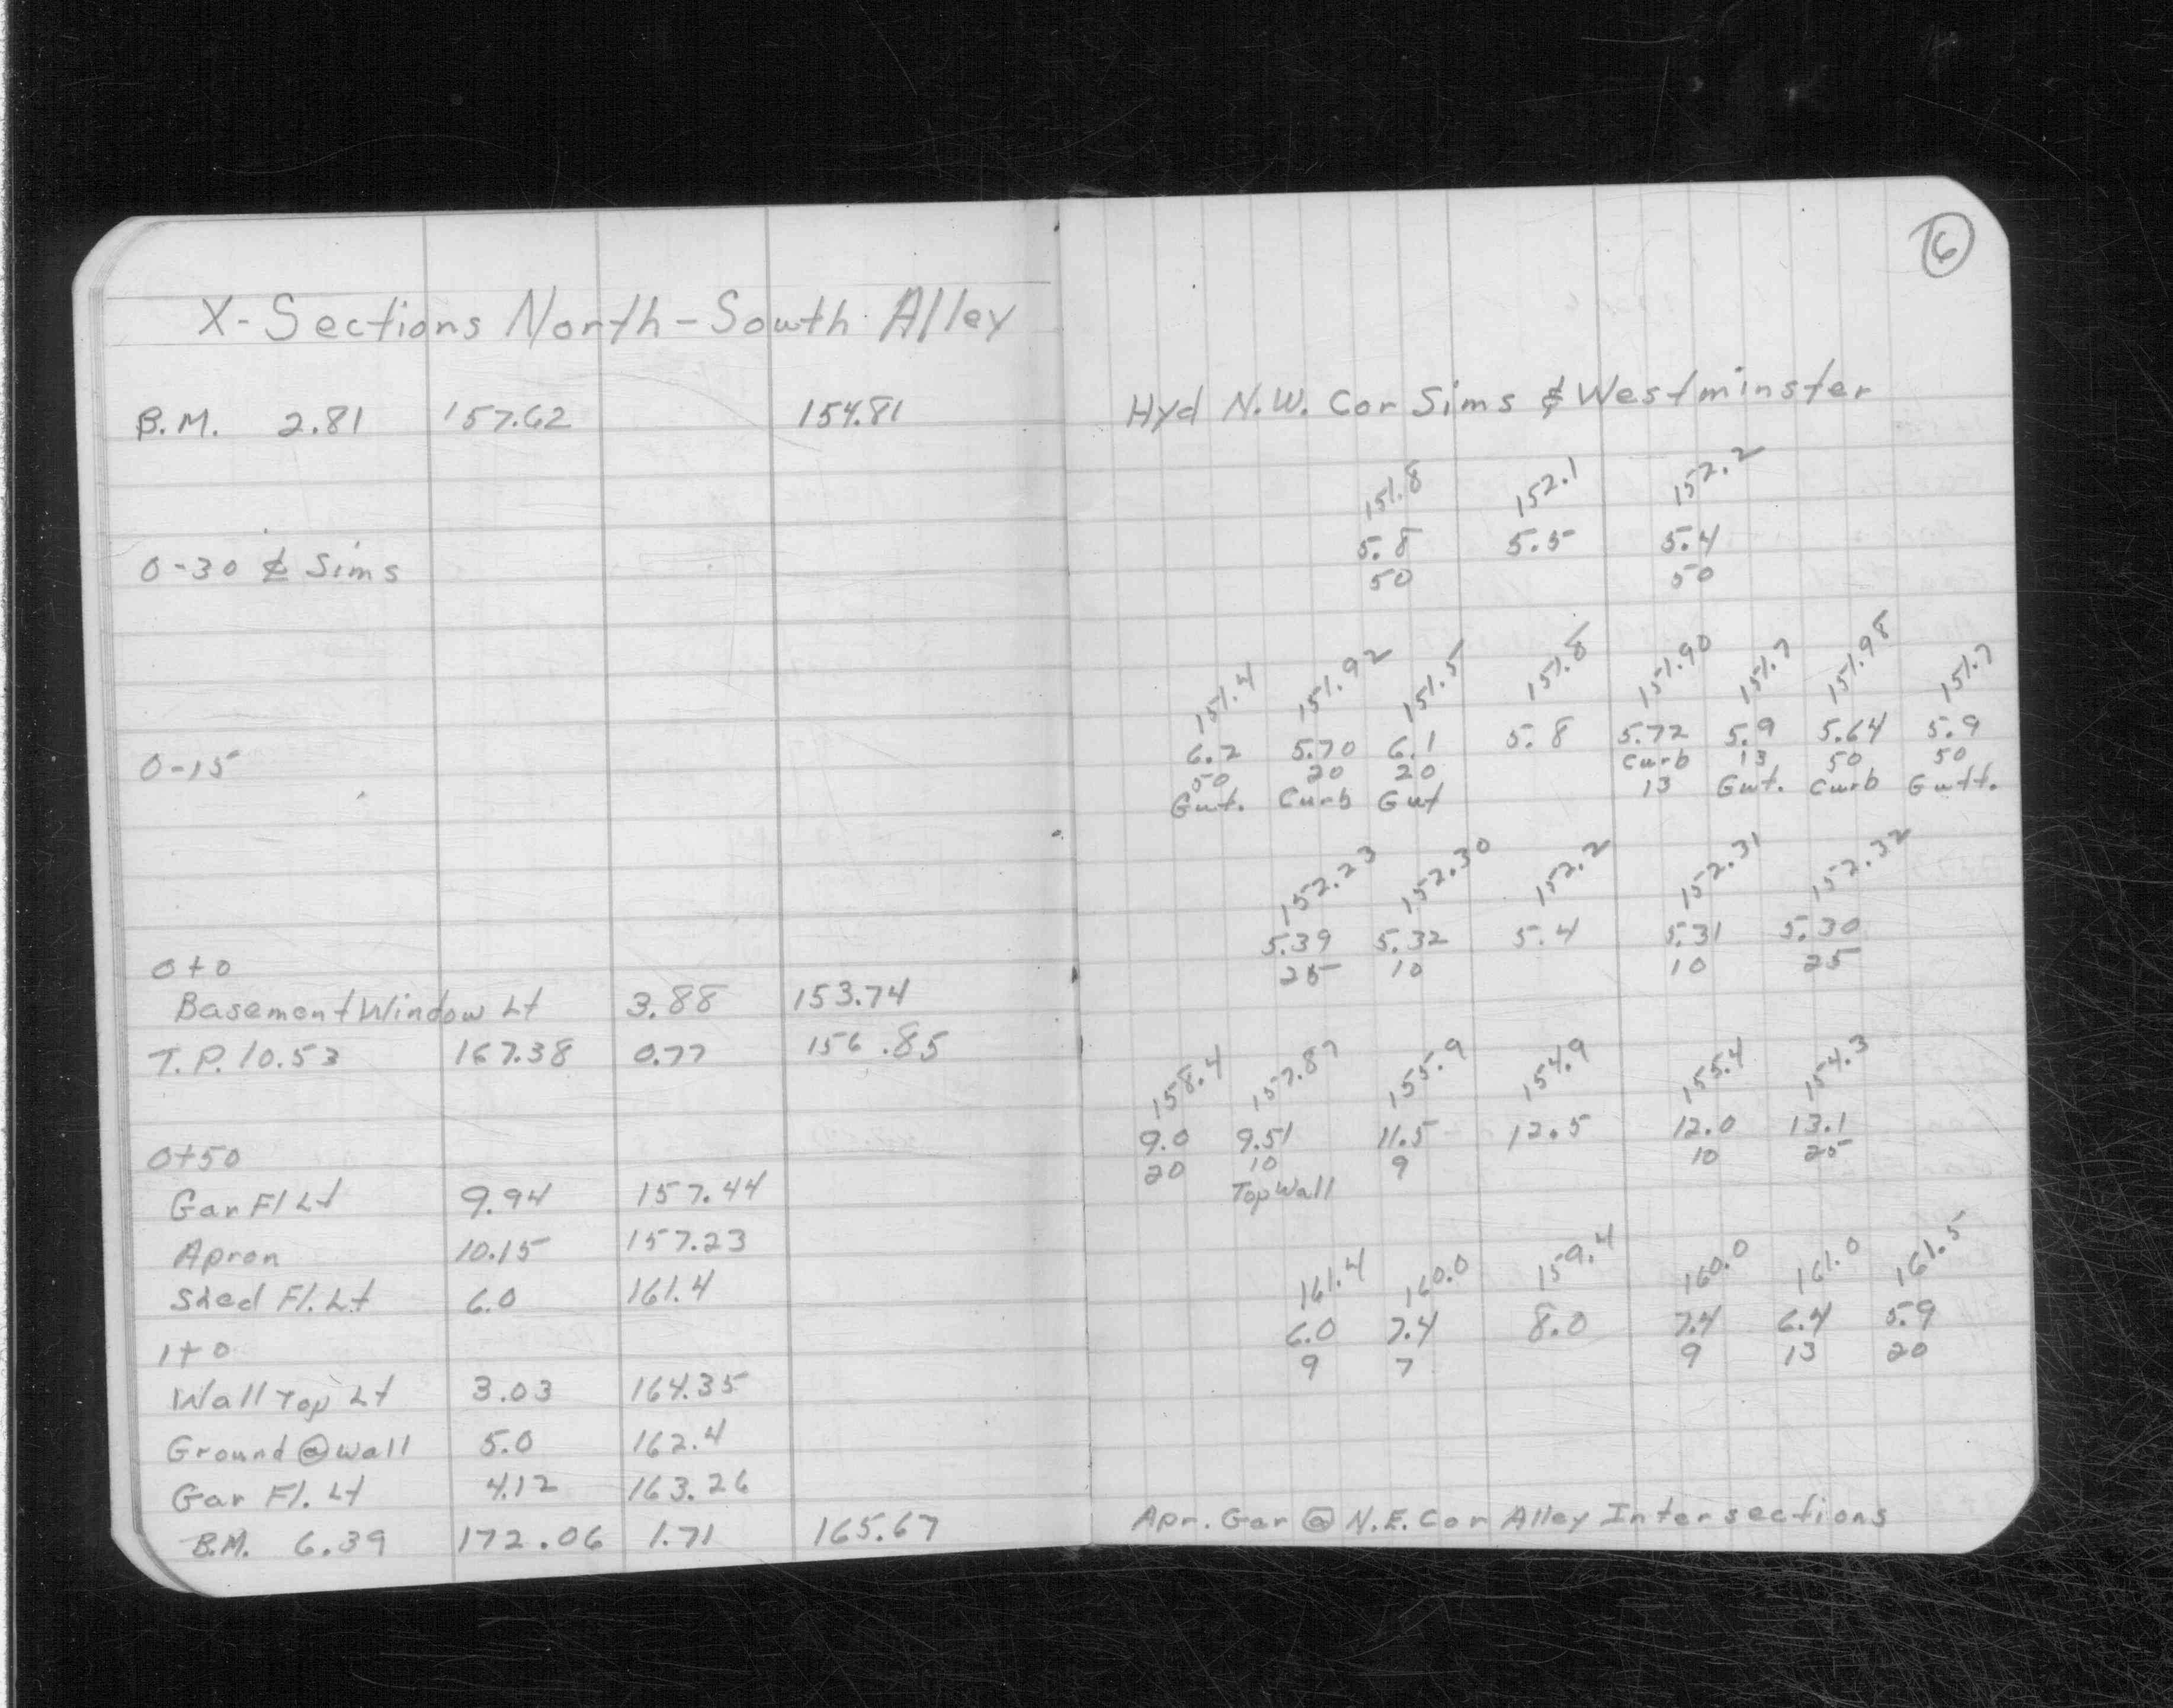 X-Sections North-South Alley
B.M. 2.81 157.62 154.81
0-30 ⅊ Sims
0-15
0+0
Basement Window Lt 3.88 153.74
T.P. 10.53 167.38 0.77 156.85
0+50
Gar Fl Lt 9.94 157.44
Apron 10.15 157.23
Shed Fl. Lt 6.0 161.4
1+0
Wall Top Lt 3.03 164.35
Ground @ wall 5.0 162.4
Gar Fl. Lt 4.12 163.26
B.M. 6.39 172.06 1.71 165.67
6
Hyd N.W. Cor Sims & Westminster
151.8 152.1 152.2
5.8 5.5 5.4
50 50
151.4 151.92 151.5 151.8 151.90 151.7 151.98 151.7
6.2 5.70 6.1 5.8 5.72 5.9 5.64 5.9
50 20 20 Curb 13 50 50
Gut. Curb Gut 13 Gut. Curb Gutt.
152.23 152.30 152.2 152.31 152.32
5.39 5.32 5.4 5.31 5.30
25 10 10 25
158.4 157.87 155.9 154.9 155.4 154.3
9.0 9.51 11.5 12.5 12.0 13.1
20 10 9 10 25
Top Wall
161.4 160.0 159.4 160.0 161.0 161.5
6.0 7.4 8.0 7.4 6.4 5.9
9 7 9 13 20
Apr. Gar @ N.E. Cor Alley Intersections